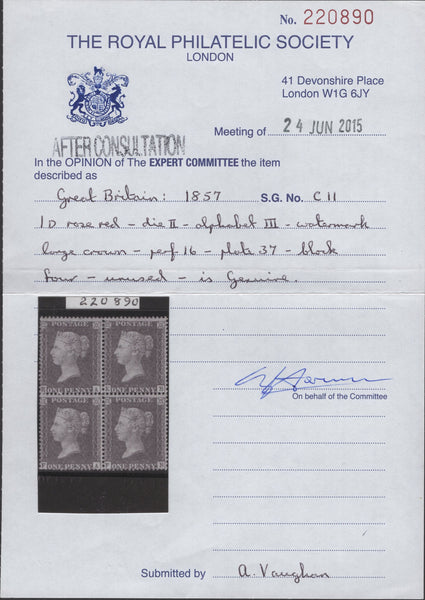 No. 220890
THE ROYAL PHILATELIC SOCIETY
LONDON
41 Devonshire Place
London W1G 6JY
Meeting of 24 JUN 2015
AFTER CONSULTATION
In the OPINION of The EXPERT COMMITTEE the item
described as
Great Britain: 1857 S.G. No. C11
1D rose red - die II - alphabet III - watermark
large crown - perf. 16 - plate 37 - block
four - unused - is Genuine.
220890
POSTAGE POSTAGE
ONE PENNY ONE PENNY
POSTAGE POSTAGE
ONE PENNY ONE PENNY
On behalf of the Committee
Submitted by A. Vaughan